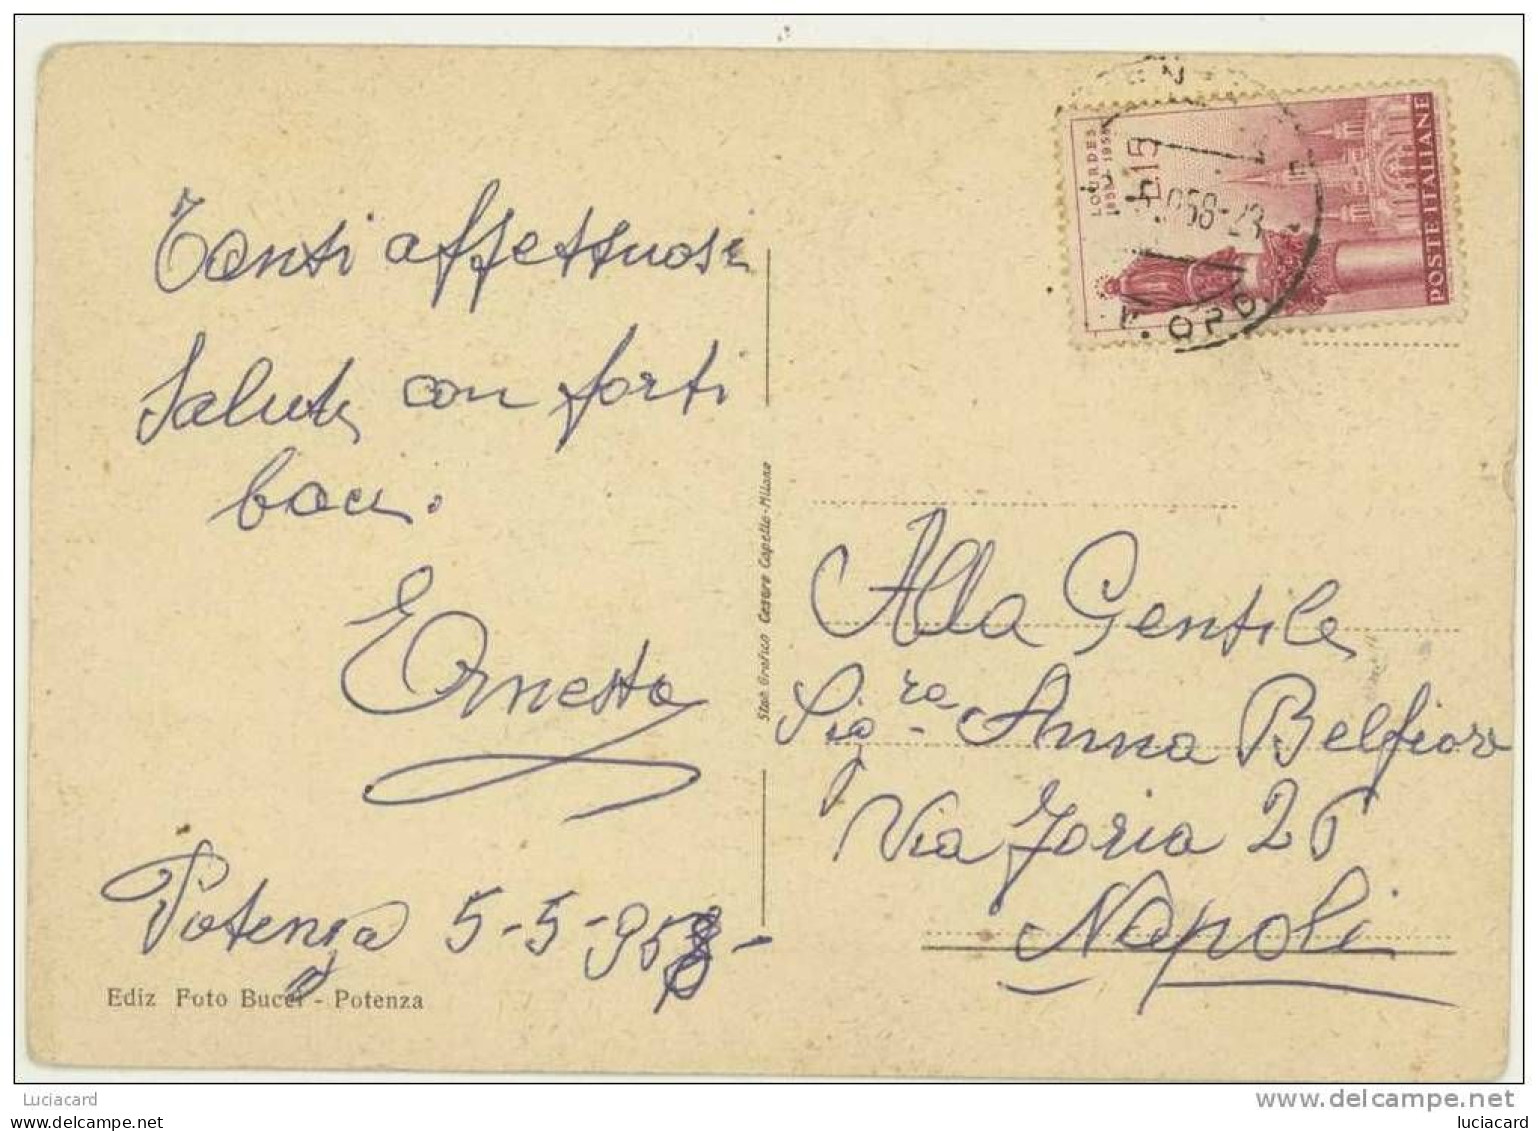 Tanti affettuosi
Saluti con forti
baci.
Ernesto
Potenza 5-5-958-
Ediz Foto Bucci - Potenza
Stab. Grafico Cesare Capello - Milano
LOURDES
1858 - 1958
L.15
POSTE ITALIANE
058-23
Alla Gentile
Sig.ra Anna Belfiore
Via Foria 26
Napoli
Luciacard
luciacard.net
www.delcampe.net
luciacard